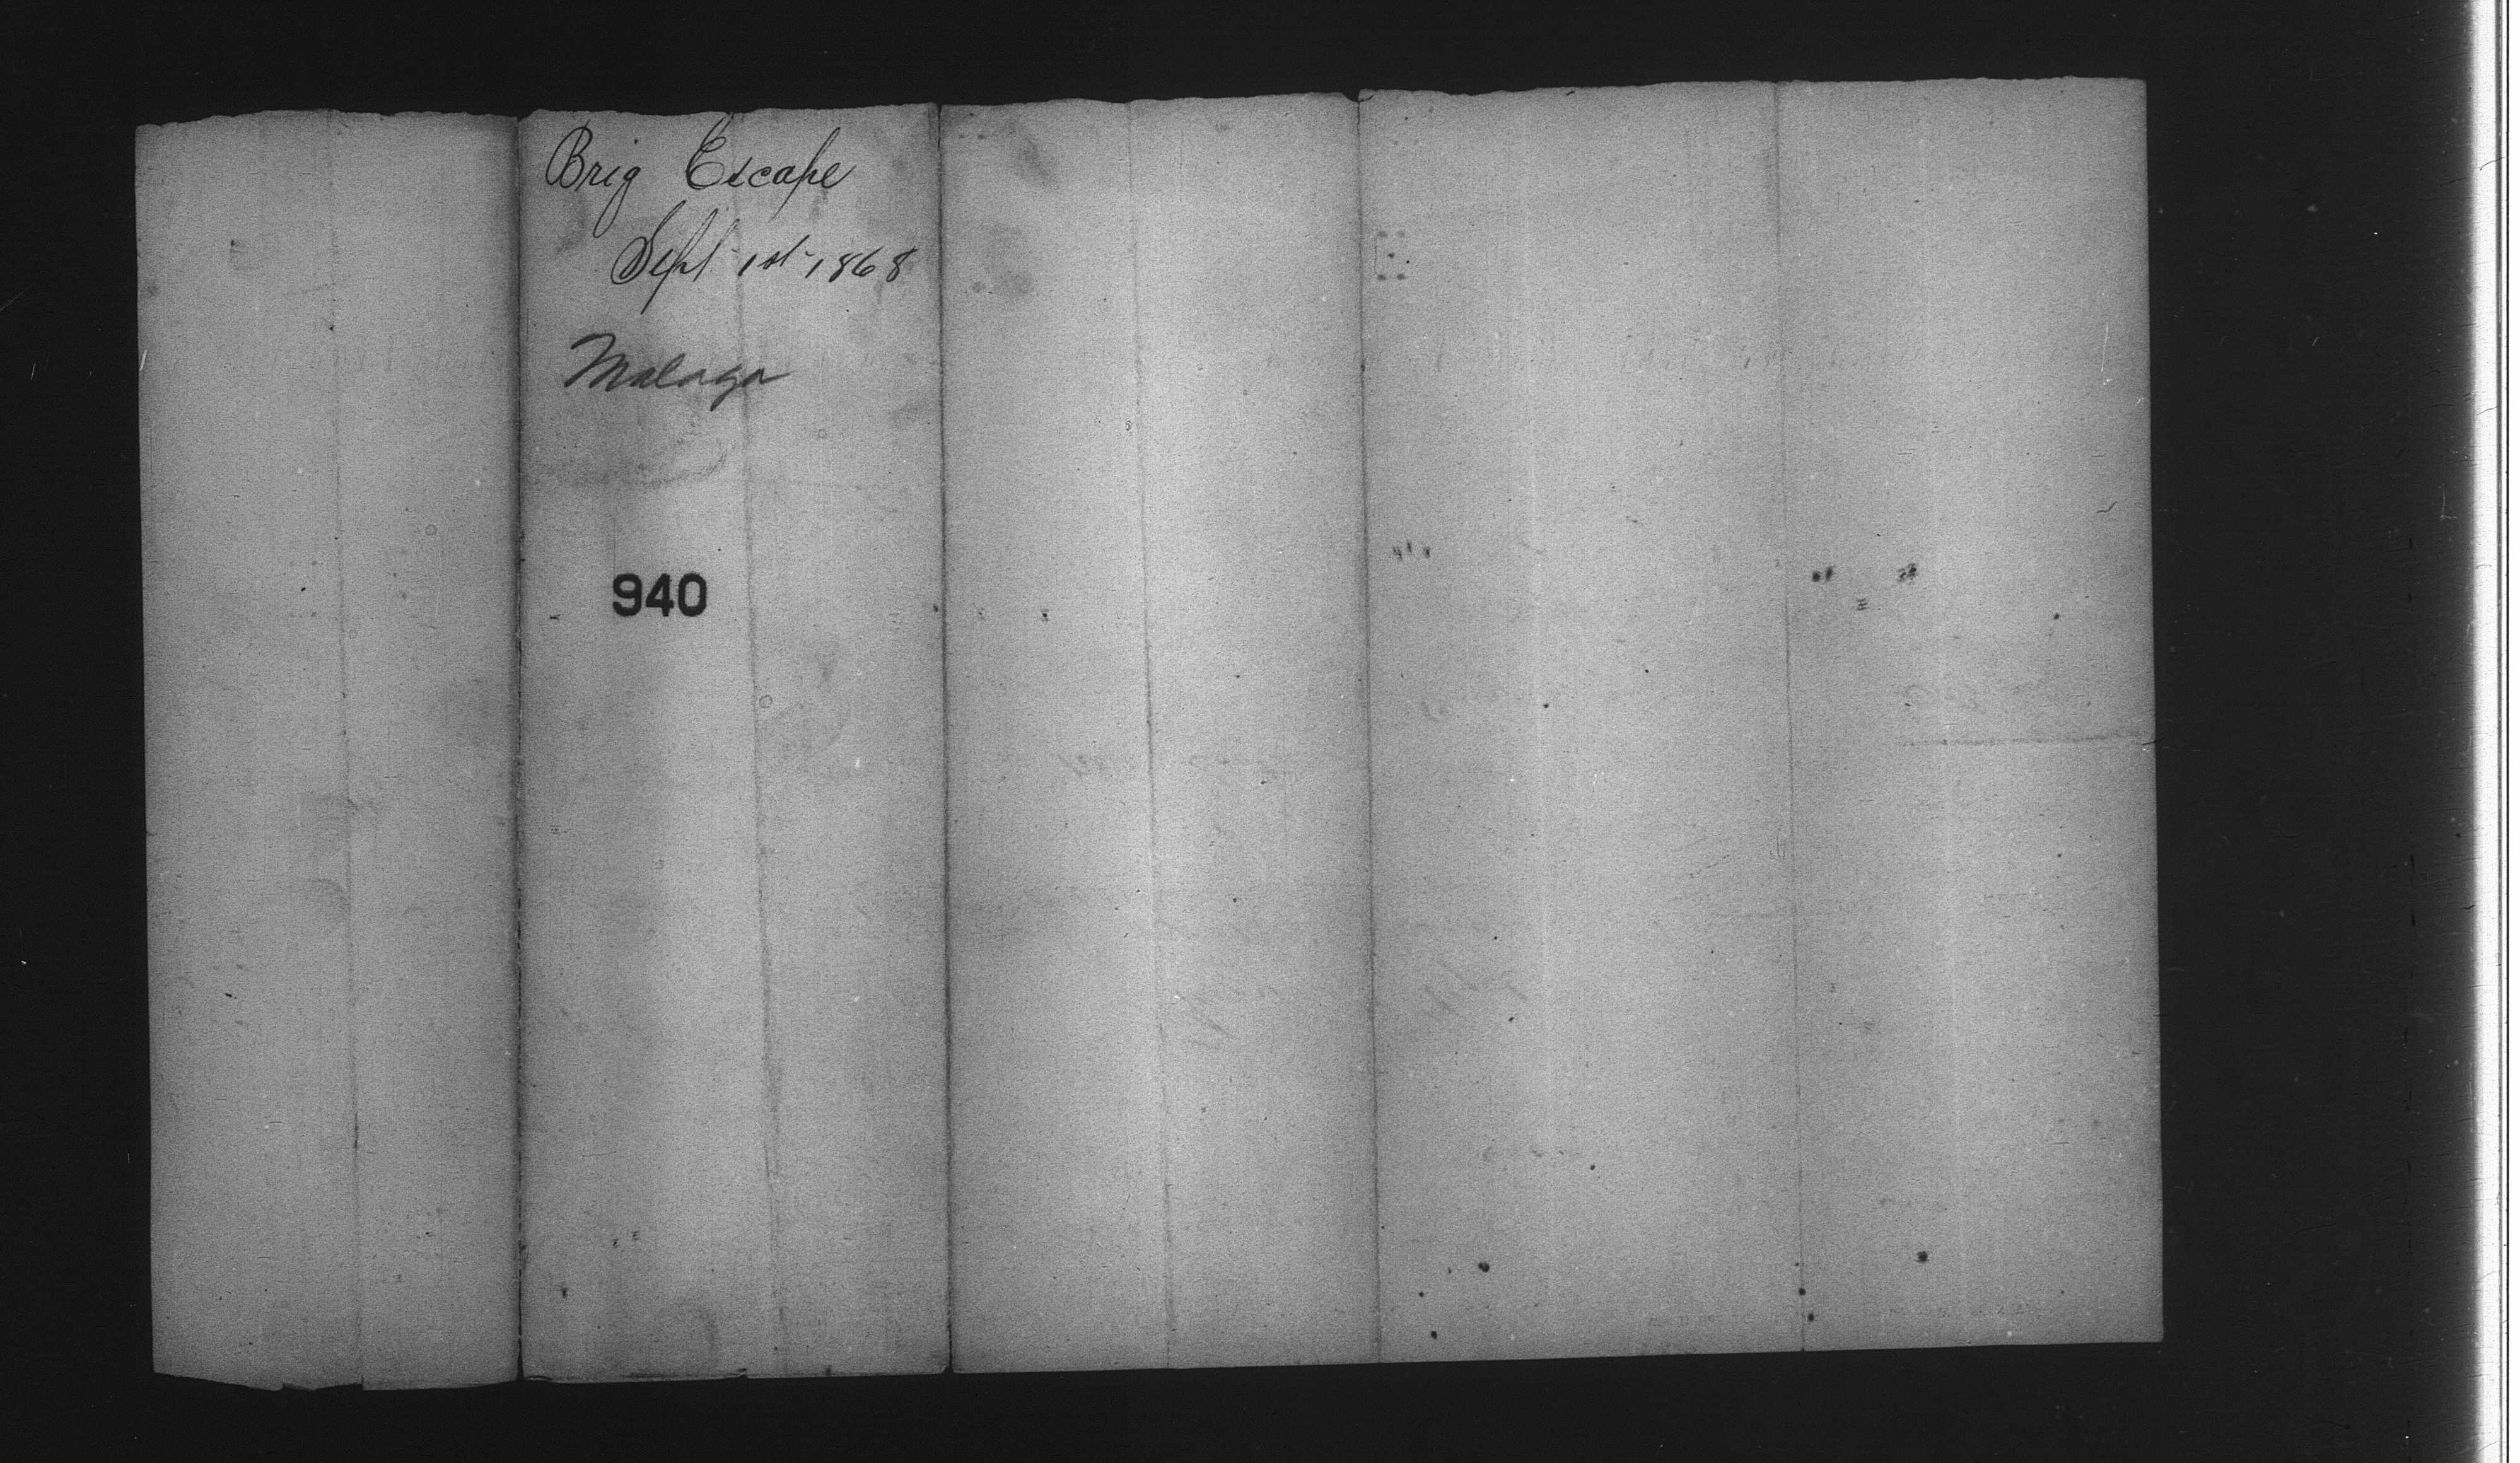 Brig Escape
Sept 1st 1868
Malaga
940